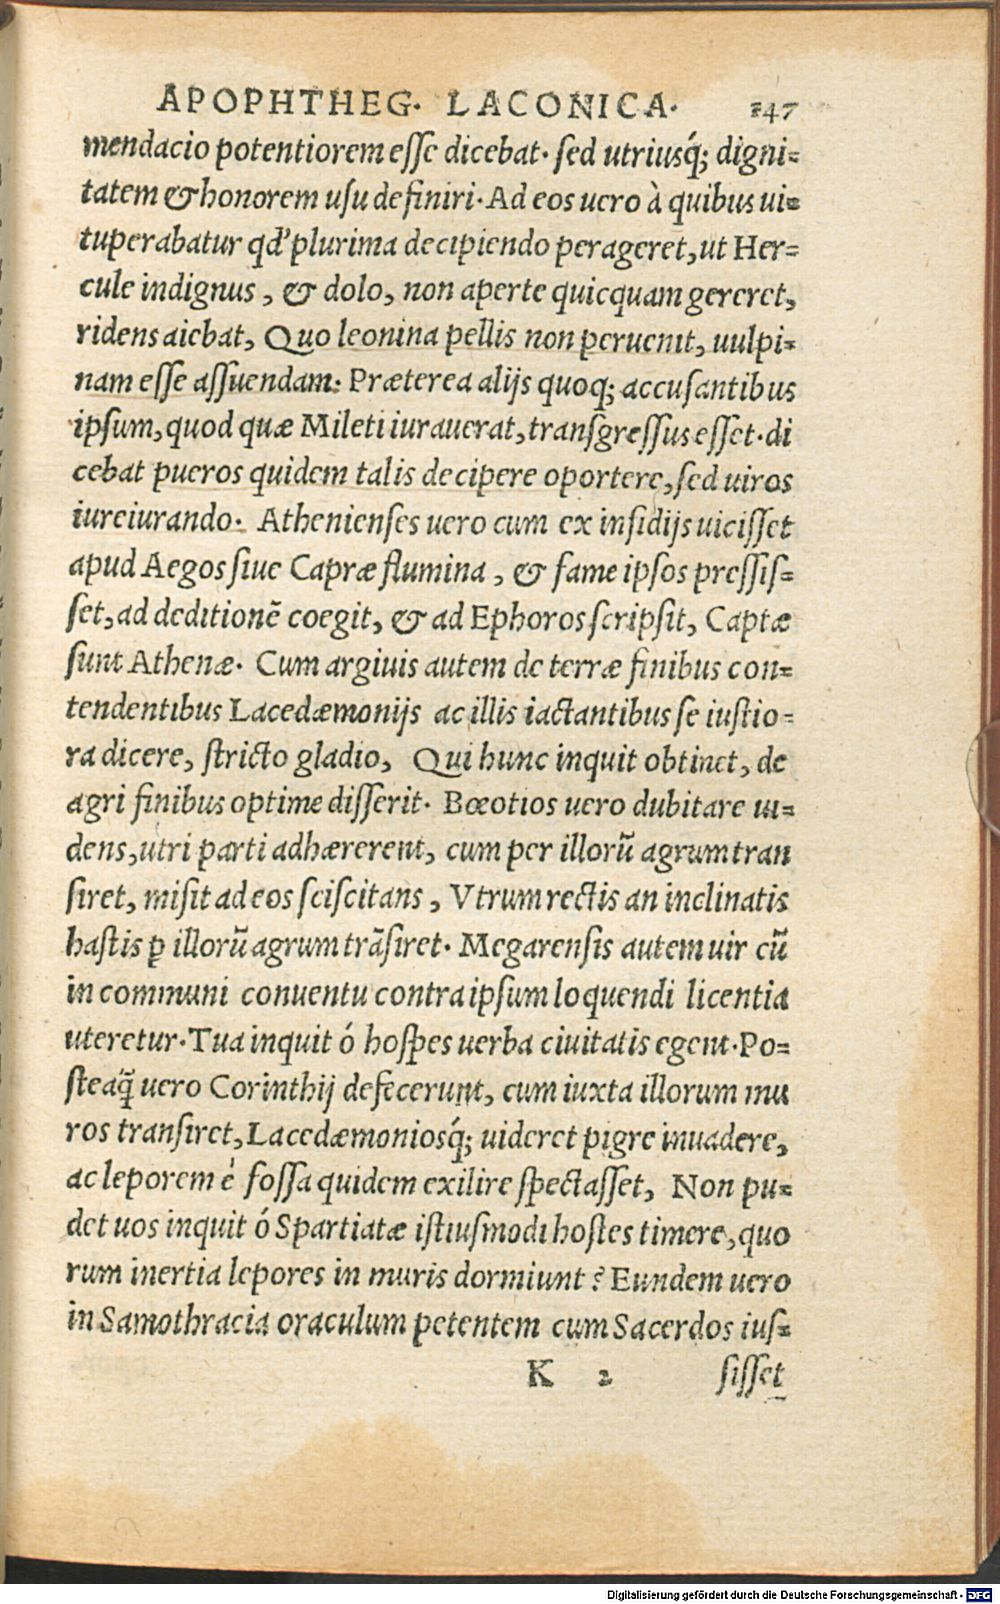 APOPHTHEG. LACONICA. 147
mendacio potentiorem esse dicebat. sed utriusq́; digni=
tatem & honorem usu definiri. Ad eos uero à quibus ui=
tuperabatur qd' plurima decipiendo perageret, ut Her=
cule indignus, & dolo, non aperte quicquam gereret,
ridens aiebat, Quo leonina pellis non peruenit, uulpi=
nam esse assuendam: Præterea alijs quoq; accusantibus
ipsum, quod quæ Mileti iurauerat, transgressus esset. di
cebat pueros quidem talis decipere oportere, sed uiros
iureiurando. Athenienses uero cum ex insidijs uicisset
apud Aegos siue Capræ flumina, & fame ipsos pressis=
set, ad deditionē coegit, & ad Ephoros scripsit, Captæ
sunt Athenæ. Cum argiuis autem de terræ finibus con=
tendentibus Lacedæmonijs ac illis iactantibus se iustio=
ra dicere, stricto gladio, Qui hunc inquit obtinet, de
agri finibus optime disserit. Bœotios uero dubitare ui=
dens, utri parti adhærerent, cum per illorũ agrum tran
siret, misit ad eos sciscitans, Vtrum rectis an inclinatis
hastis ꝑ illorũ agrum trãsiret. Megarensis autem uir cũ
in communi conuentu contra ipsum loquendi licentia
uteretur. Tua inquit ó hospes uerba ciuitatis egent. Po=
steaq̃ uero Corinthij defecerunt, cum iuxta illorum mu
ros transiret, Lacedæmoniosq́; uideret pigre inuadere,
ac leporem è fossa quidem exilire spectasset, Non pu=
det uos inquit ó Spartiatæ istiusmodi hostes timere, quo
rum inertia lepores in muris dormiunt? Eundem uero
in Samothracia oraculum petentem cum Sacerdos ius=
K 2 sisset
Digitalisierung gefördert durch die Deutsche Forschungsgemeinschaft - DFG